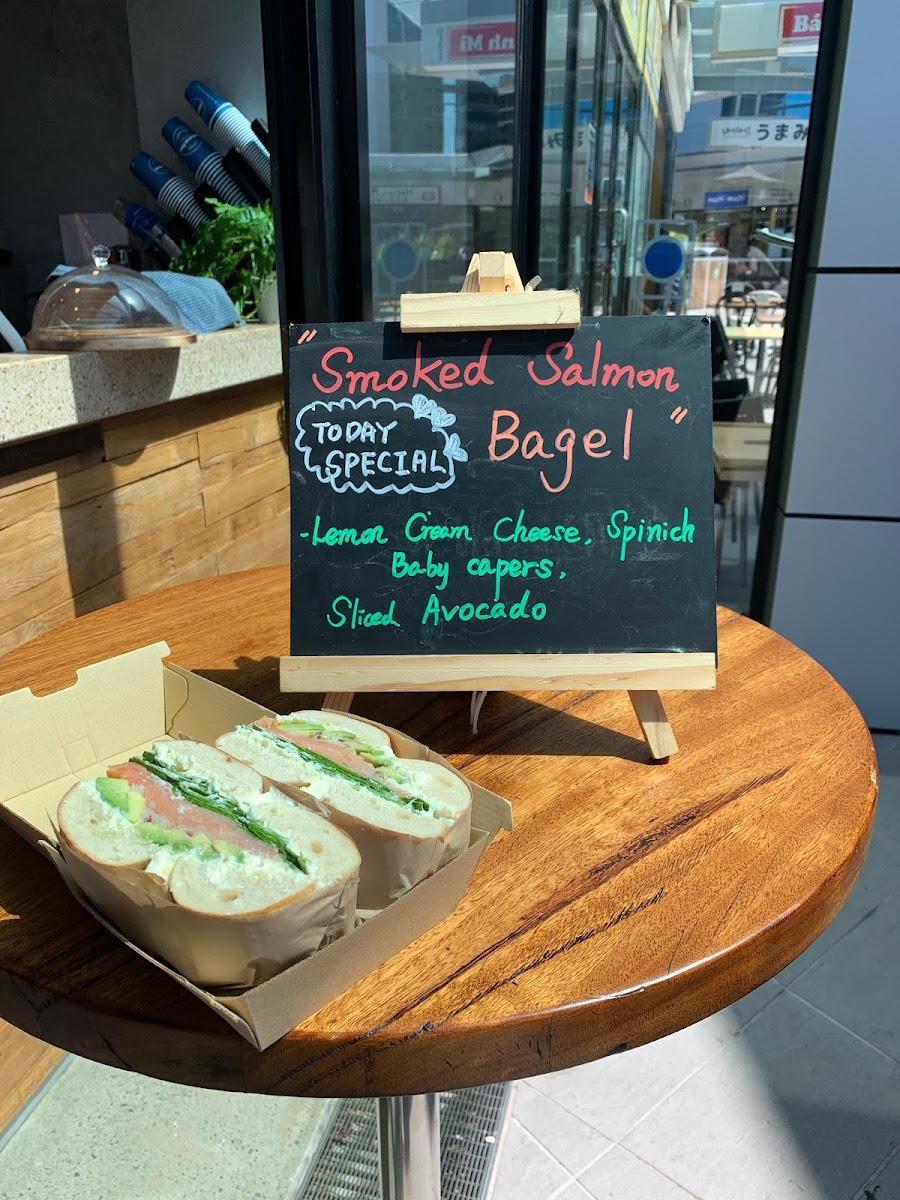 Mì nh
Bá
うまみ
" Smoked Salmon
Bagel "
TODAY
SPECIAL
-Lemon Cream Cheese, Spinich
Baby capers,
Sliced Avocado